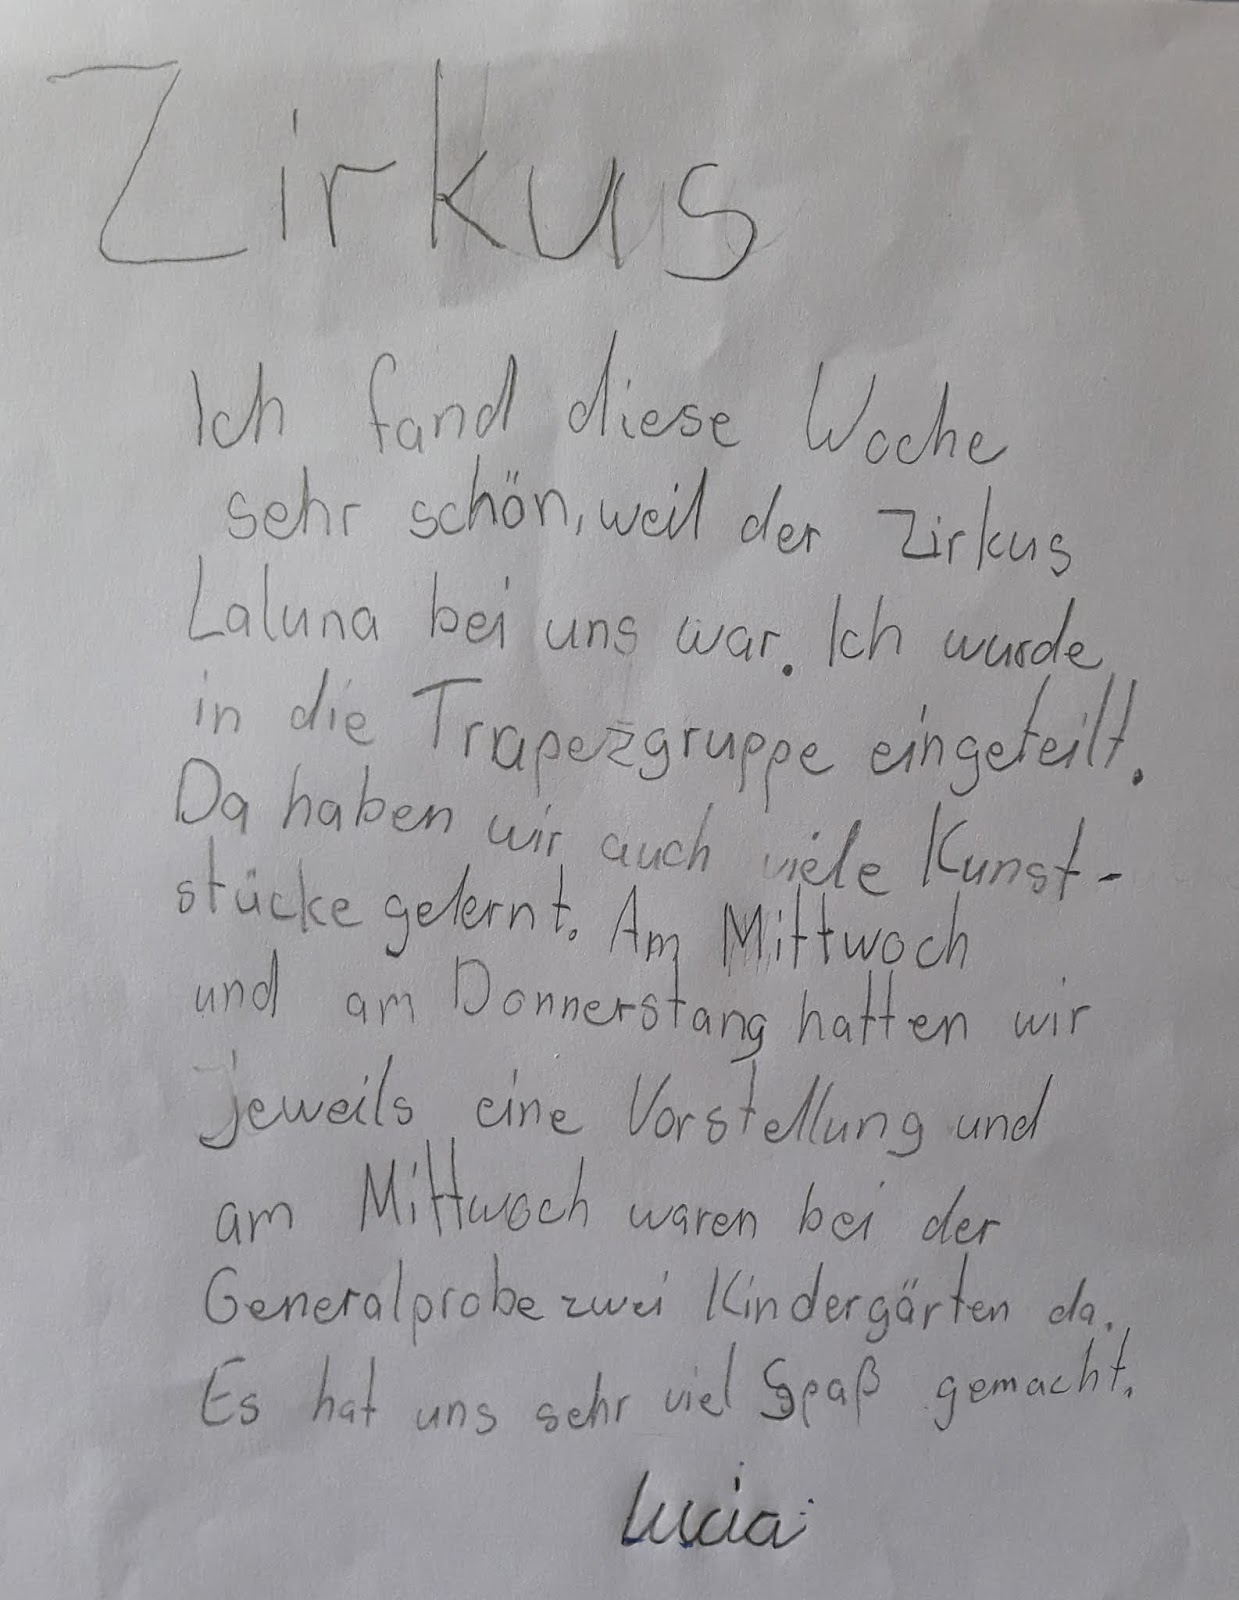 Zirkus
Ich fand diese Woche
sehr schön, weil der Zirkus
Laluna bei uns war. Ich wurde
in die Trapezgruppe eingeteilt.
Da haben wir auch viele Kunst-
stücke gelernt. Am Mittwoch
und am Donnerstang hatten wir
jeweils eine Vorstellung und
am Mittwoch waren bei der
Generalprobe zwei Kindergärten da.
Es hat uns sehr viel Spaß gemacht.
Lucia